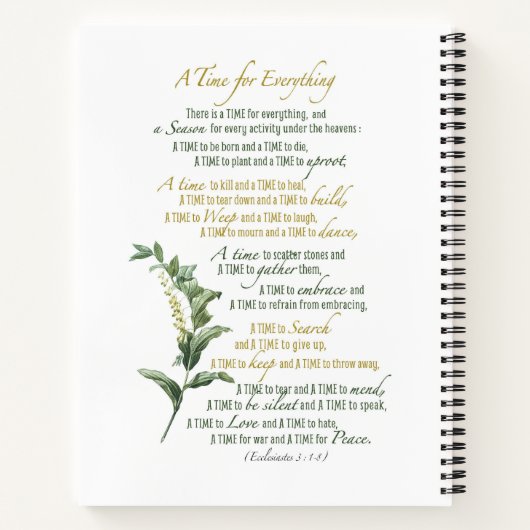 A Time for Everything
There is a TIME for everything, and
a Season for every activity under the heavens:
A TIME to be born and a TIME to die,
A TIME to plant and a TIME to uproot,
A time to kill and a TIME to heal,
A TIME to tear down and a TIME to build,
A TIME to Weep and a TIME to laugh,
A TIME to mourn and a TIME to dance,
A time to scatter stones and
A TIME to gather them,
A TIME to embrace and
A TIME to refrain from embracing,
A TIME to Search
and A TIME to give up,
A TIME to keep and A TIME to throw away,
A TIME to tear and A TIME to mend,
A TIME to be silent and A TIME to speak,
A TIME to Love and a TIME to hate,
A TIME for war and A TIME for Peace.
(Ecclesiastes 3 : 1-8)